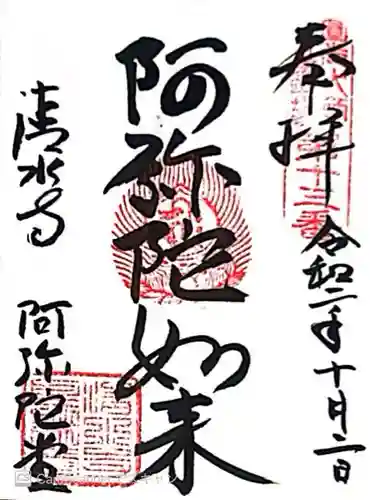 奉拝
令和二年十月二日
阿弥陀如来
清水寺
阿弥陀堂